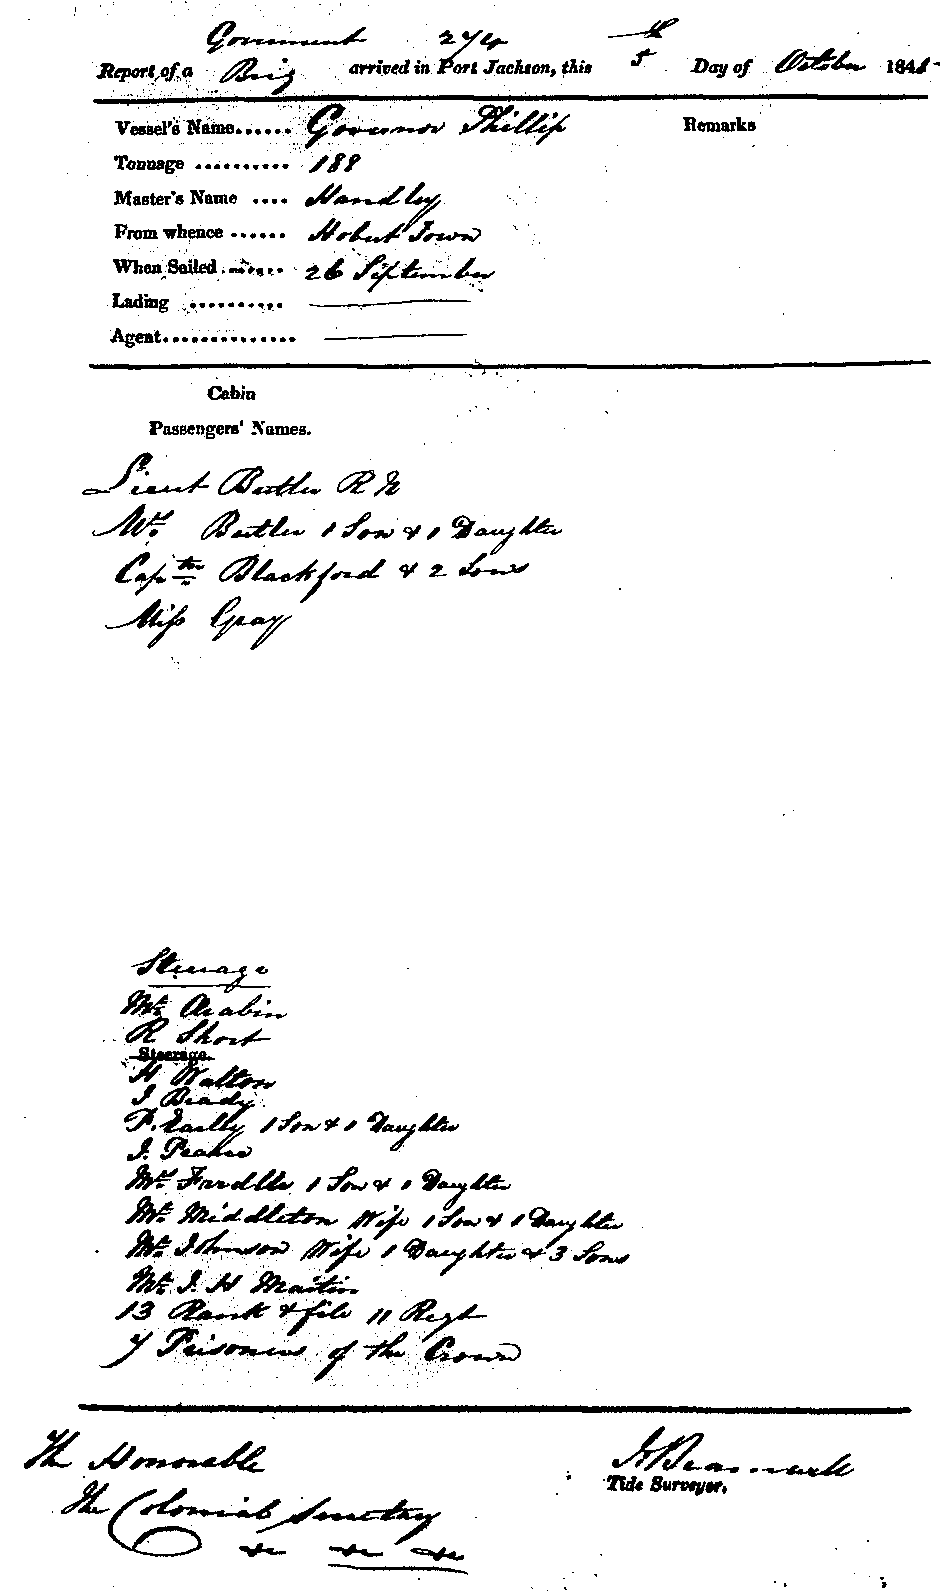 Government 274 th
Report of a Brig arrived in Port Jackson, this 5 Day of October 1845
Vessel's Name...... Governor Phillip Remarks
Tonnage .......... 188
Master's Name .... Handley
From whence ...... Hobart Town
When Sailed ....... 26 September
Lading ..........
Agent..............
Cabin
Passengers' Names.
Lieut Butler R N
Mrs Butler 1 Son & 1 Daughter
Captn Blackford & 2 Sons
Miss Gray
Steerage
Mr Arabin
R Short
Steerage.
H Walton
J Brady
P. Early 1 Son & 1 Daughter
J. Pearce
1 Son & 1 Daughter
Mr Middleton Wife 1 Son & 1 Daughter
Mr Johnson Wife 1 Daughter & 3 Sons
Mr J. H Martin
13 Rank & file 11 Regt
7 Prisoners of the Crown
The Honorable
The Colonial Secretary
&c &c &c
Tide Surveyor.